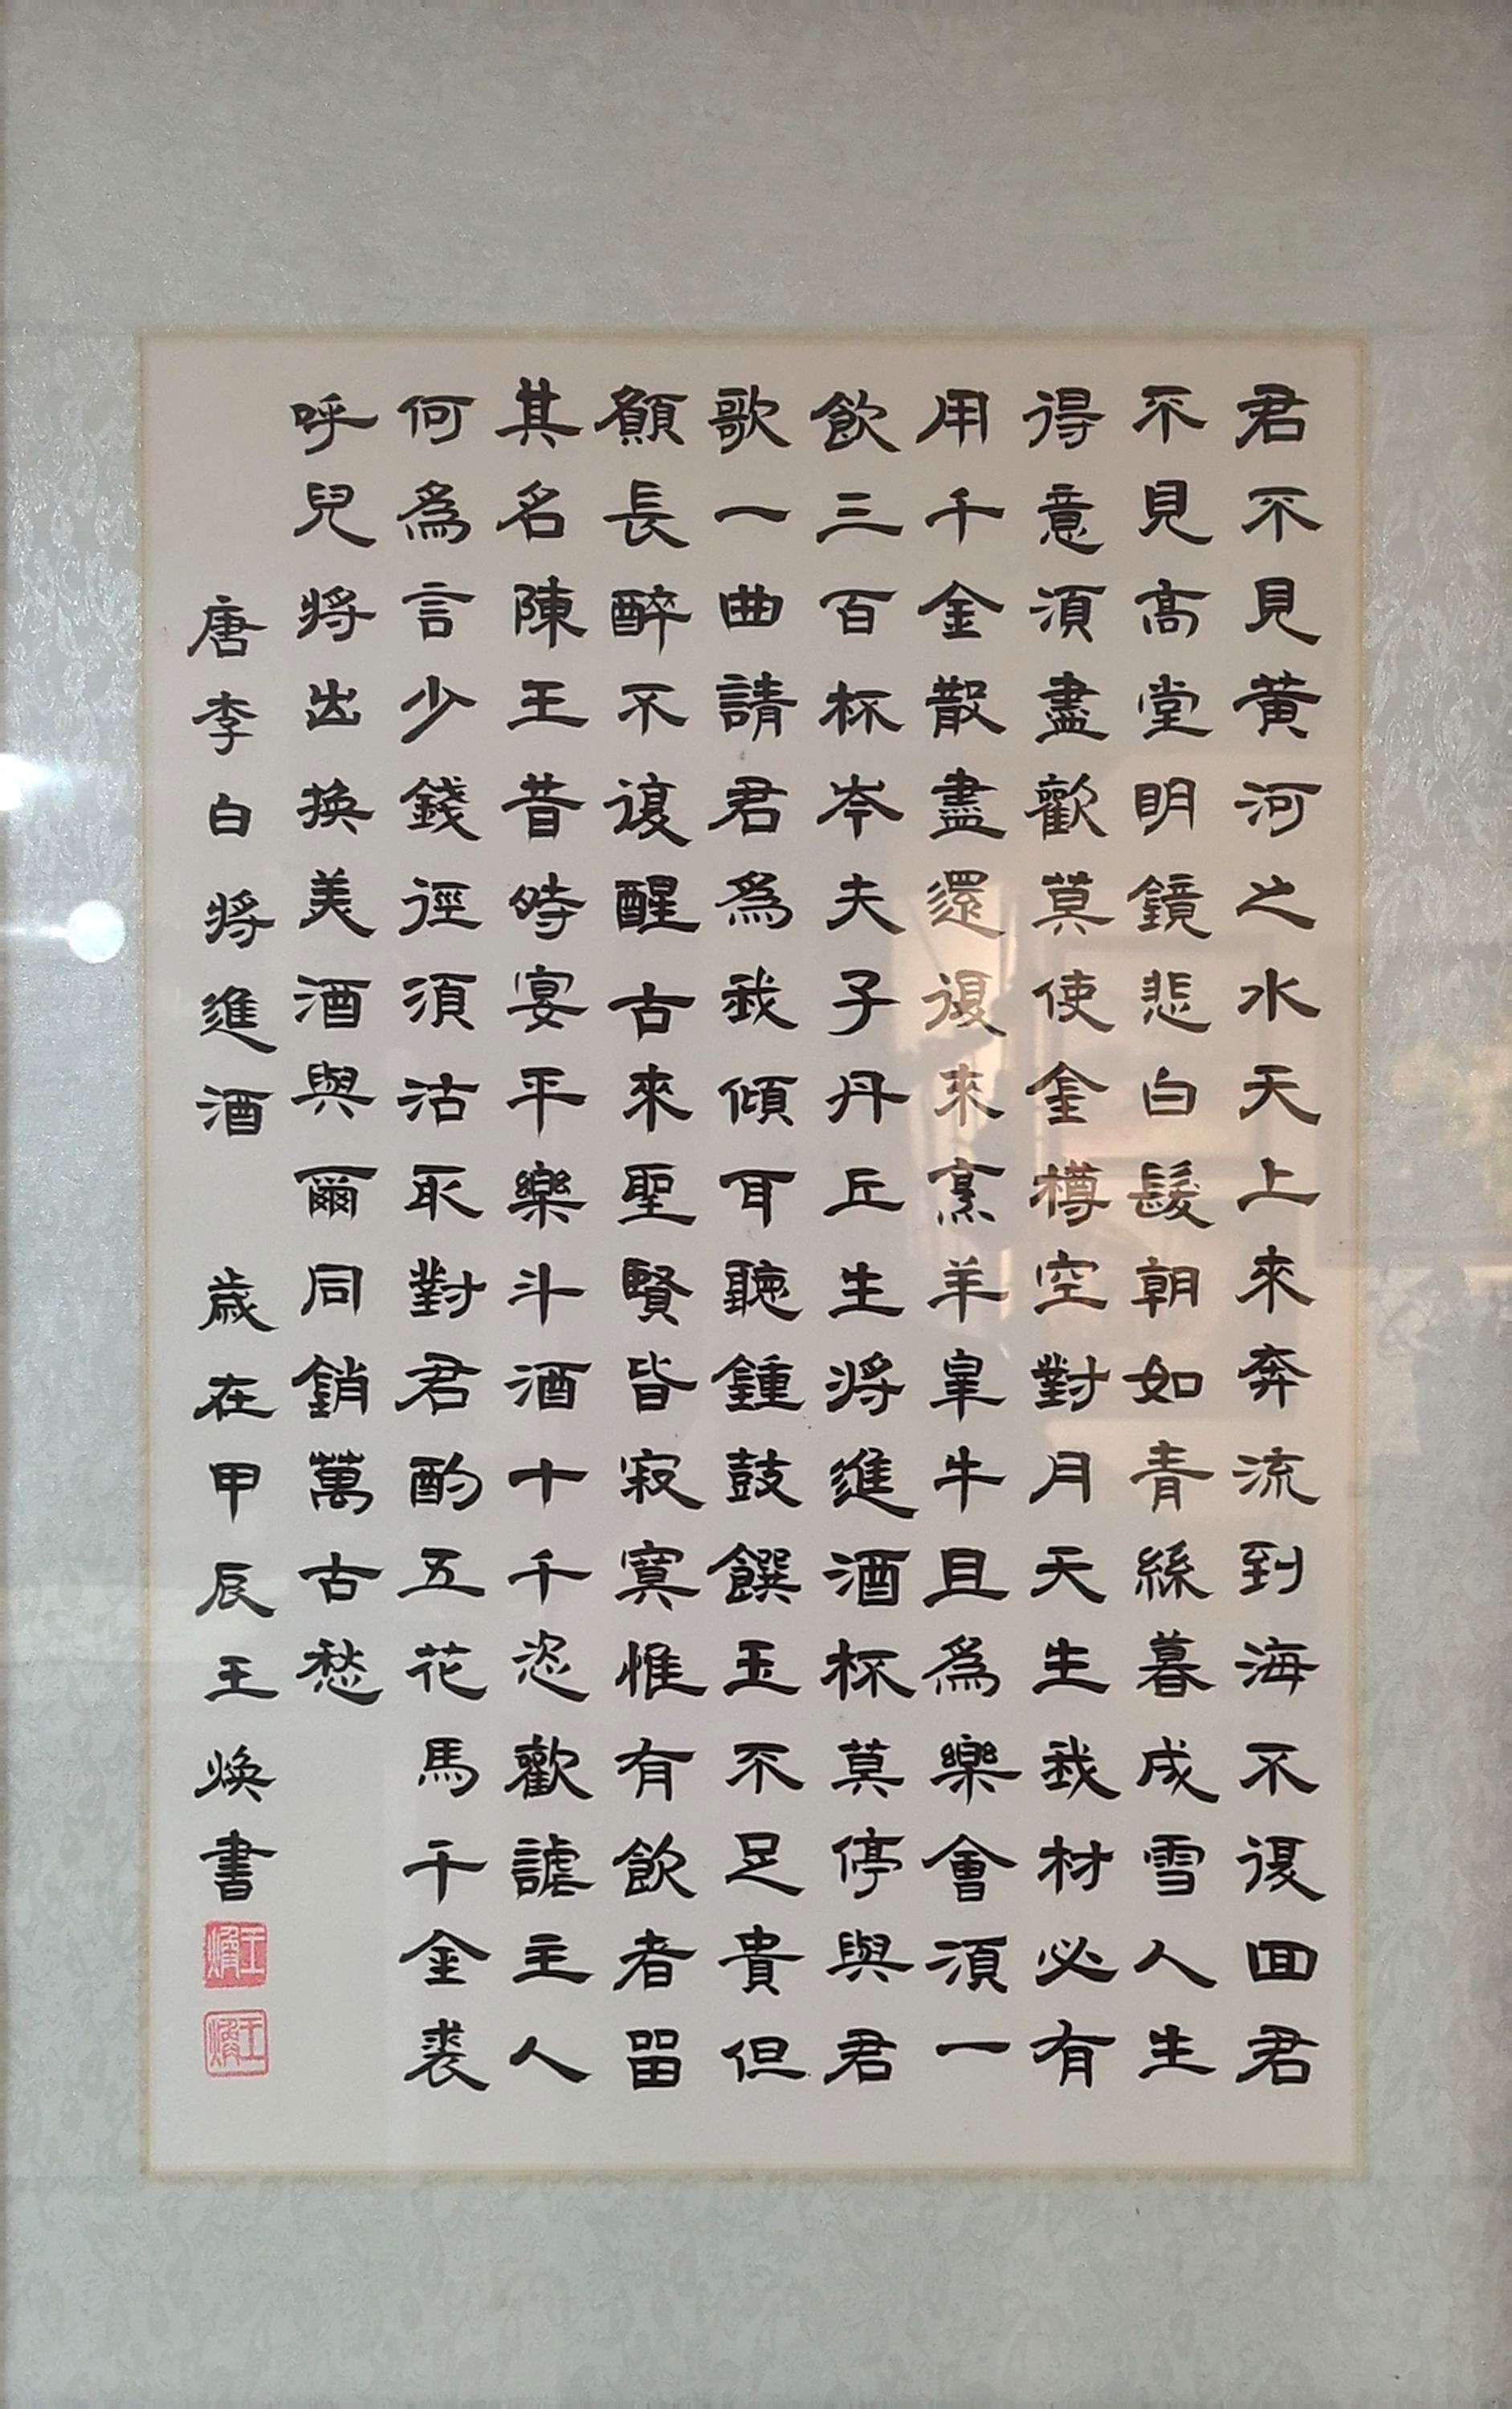 君不見黃河之水天上來奔流到海不復回君
不見高堂明鏡悲白髮朝如青絲暮成雪人生
得意須盡歡莫使金樽空對月天生我材必有
用千金散盡還復來烹羊宰牛且為樂會須一
飲三百杯岑夫子丹丘生將進酒杯莫停與君
歌一曲請君為我傾耳聽鍾鼓饌玉不足貴但
願長醉不復醒古來聖賢皆寂寞惟有飲者留
其名陳王昔時宴平樂斗酒十千恣歡謔主人
何為言少錢徑須沽取對君酌五花馬千金裘
呼兒將出換美酒與爾同銷萬古愁
唐李白將進酒 歲在甲辰王煥書
王煥
王煥